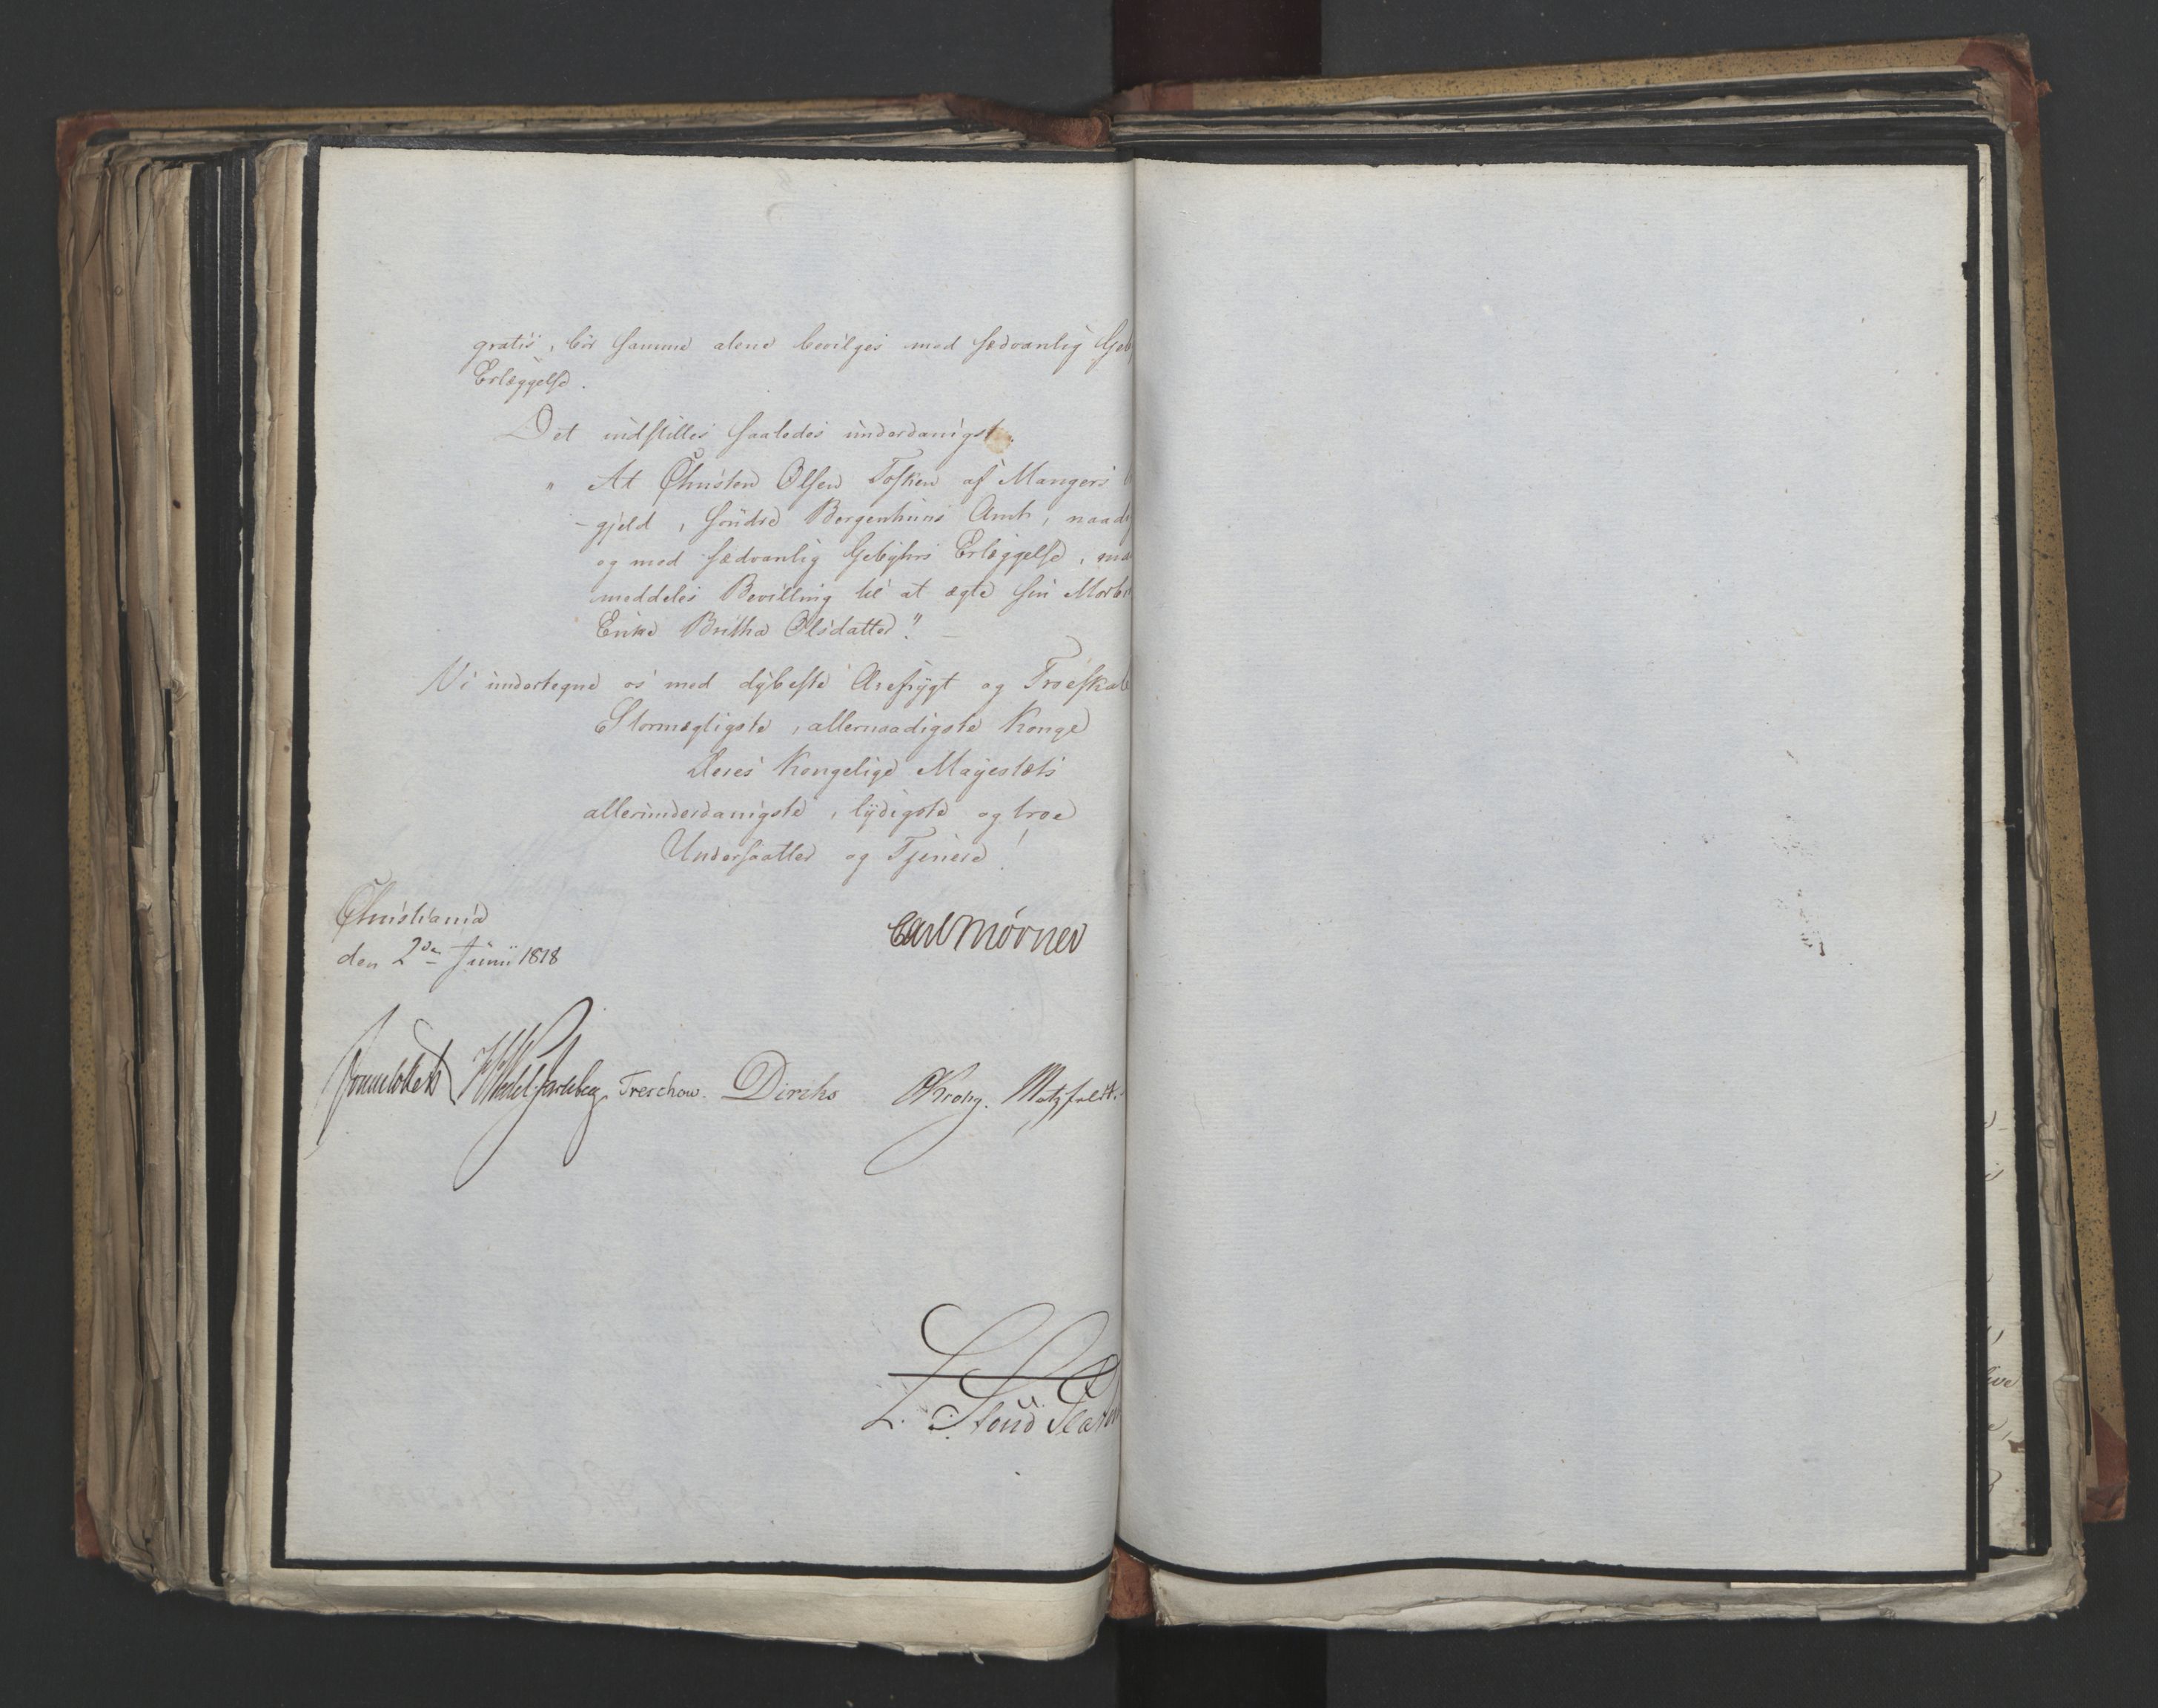 gratis, bör samme alene bevilges med sædvanlig Geb
Erlæggelse.
Det indstilles saaledes underdanigst:
" At Christen Olsen Tosken af Mangers
-gjeld, söndre Bergenhuus Amt, naad
og med sædvanlig Gebyhrs Erlæggelse, maa
meddeles Bevilling til at ægte sin Morbr
Enke Britha Olsdatter."
Vi undertegne os med dybeste Ærefrygt og Troeskab
Stormægtigste, allernaadigste Konge
Deres Kongelige Majestæts
allerunderdanigste, lydigste og troe
Undersaatter og Tjenere!
Christiania
den 2den Junii 1818
Carl Mörner
Sommerfeldt HWedel Jarlsberg Treschow. Diriks CKrohg. Motzfeldt.
L. Stoud Plat